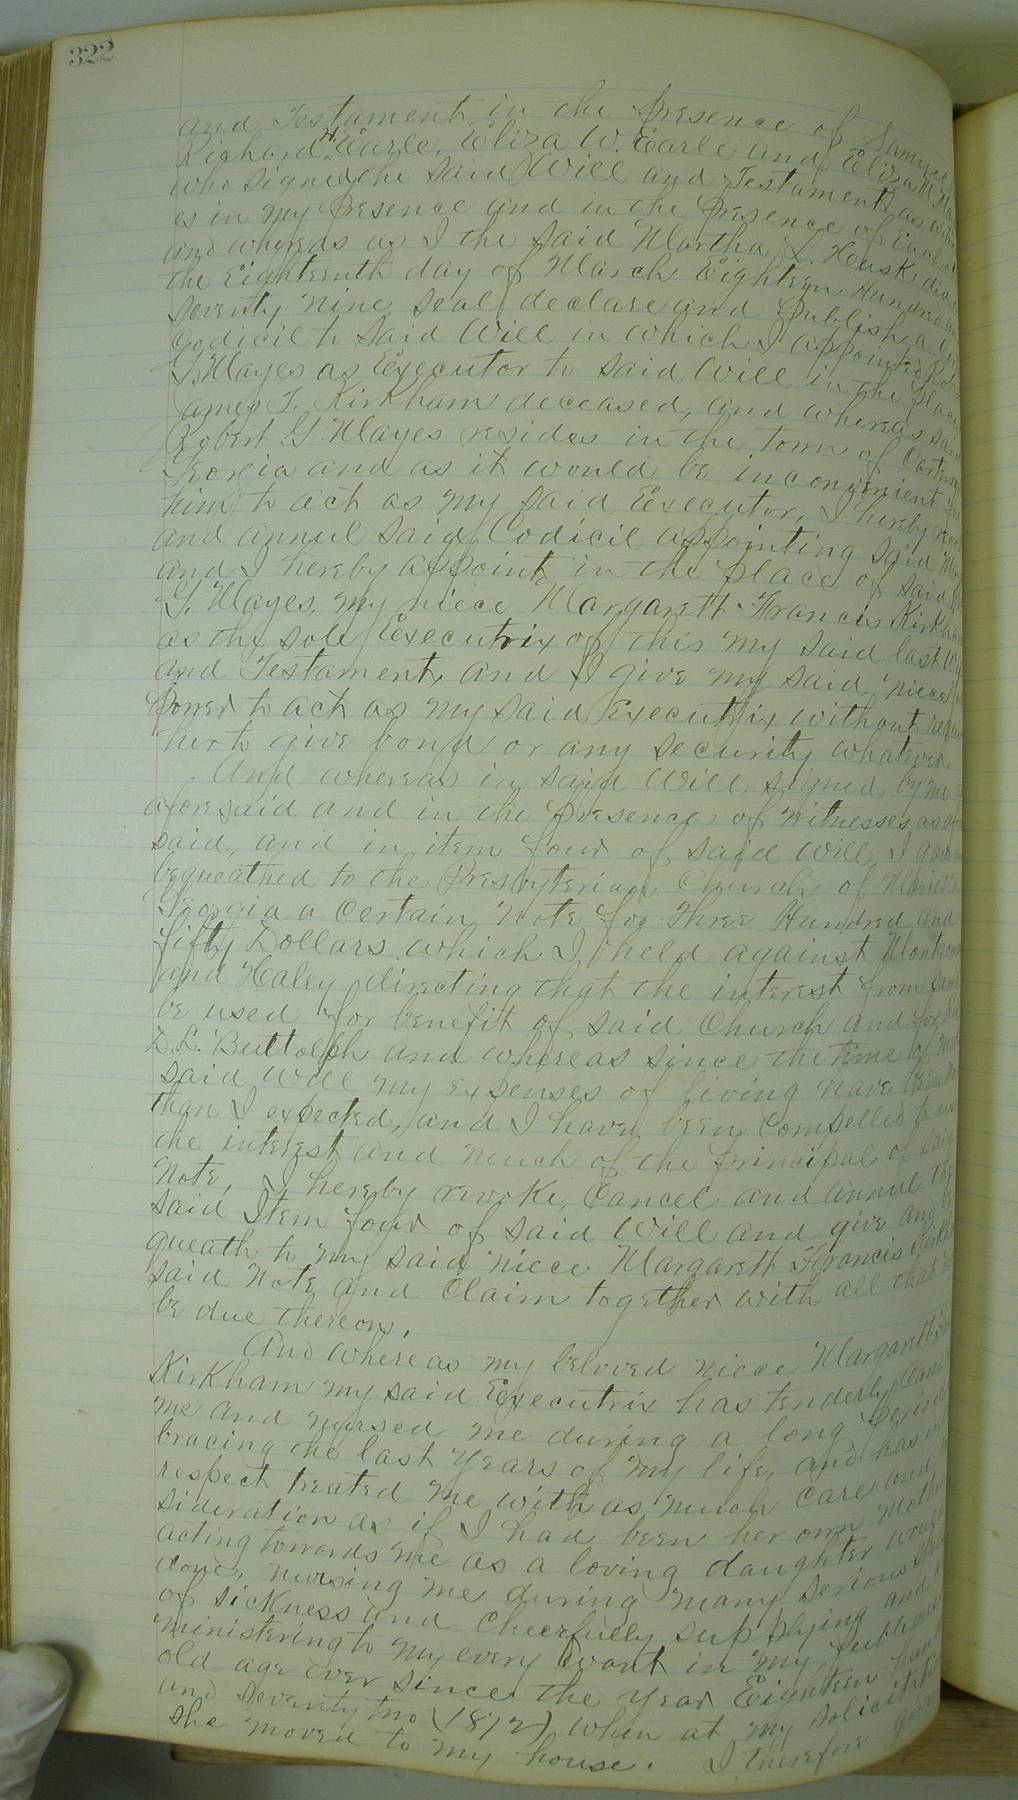 322
and Testament in the Presence of Samuel
Richard H. Earle, Eliza W. Earle and Eliza M.
who signed the said Will and Testament as
es in my Presence and in the Presence of
and whereas as I the said Martha L. Husk did
the Eighteenth day of March Eighteen Hundred
Seventy Nine seal declare and Publish a
Codicil to said Will in which I appointed
G. Mayes as Executor to said Will in the place
ames T. Kirkham deceased, and whereas said
Robert G. Mayes resides in the town of
Georgia and as it would be inconvenient
him to act as my said Executor, I hereby
and annul said Codicil appointing said
and I hereby appoint in the place of said
G. Mayes, my niece Margarett Francis
as the sole Executrix of this my said last
and Testament, and I give my said niece
Power to act as my said Executrix without
her to give bond or any security whatever.
And whereas in said Will, signed by me
aforesaid and in the presence of witnesses as
said, and in item four of said Will, I gave
bequeathed to the Presbyterian Church of Marietta
Georgia a Certain Note for Three Hundred and
fifty Dollars which I held against
and Haley directing that the interest from same
be used for benefit of said Church and for
D.L. Buttolph and whereas since the time of
said will my expenses of living have been
than I expected, and I have been Compelled to
the interest and much of the principal of said
Note, I hereby revoke, Cancel and annul the
said Item four of said Will and give and
queath to my said niece Margarett Francis
said Note and Claim together with all that
be due thereon,
And whereas my beloved niece Margarett
Kirkham my said Executrix has tenderly
me and nursed me during a long Period
bracing the last Years of my life, and has in
respect treated me with as much Care and
sideration as if I had been her own Mother
acting towards me as a loving daughter would
done, nursing me during many serious
of sickness and Cheerfully supplying and
ministering to my every want in my
old age ever since the Year Eighteen
and Seventy two (1872) when at my
she moved to my house. I therefore